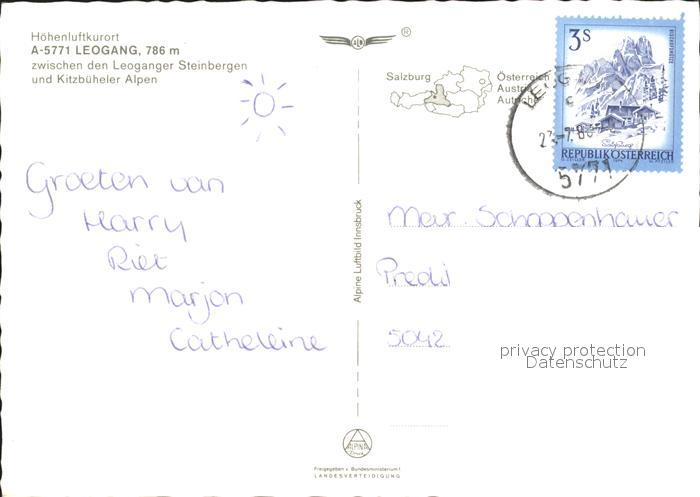 Höhenluftkurort
A-5771 LEOGANG, 786 m
zwischen den Leoganger Steinbergen
und Kitzbüheler Alpen
®
Salzburg
Österreich
Austria
Autriche
3S
REPUBLIK ÖSTERREICH
5771
Groeten van
Harry
Riet
Marjon
Catheleine
Alpine Luftbild Innsbruck
Mevr. Schoppenhauer
Predil
5042
privacy protection
Datenschutz
ALPINA
Freigegeben v. Bundesministerium f.
LANDESVERTEIDIGUNG